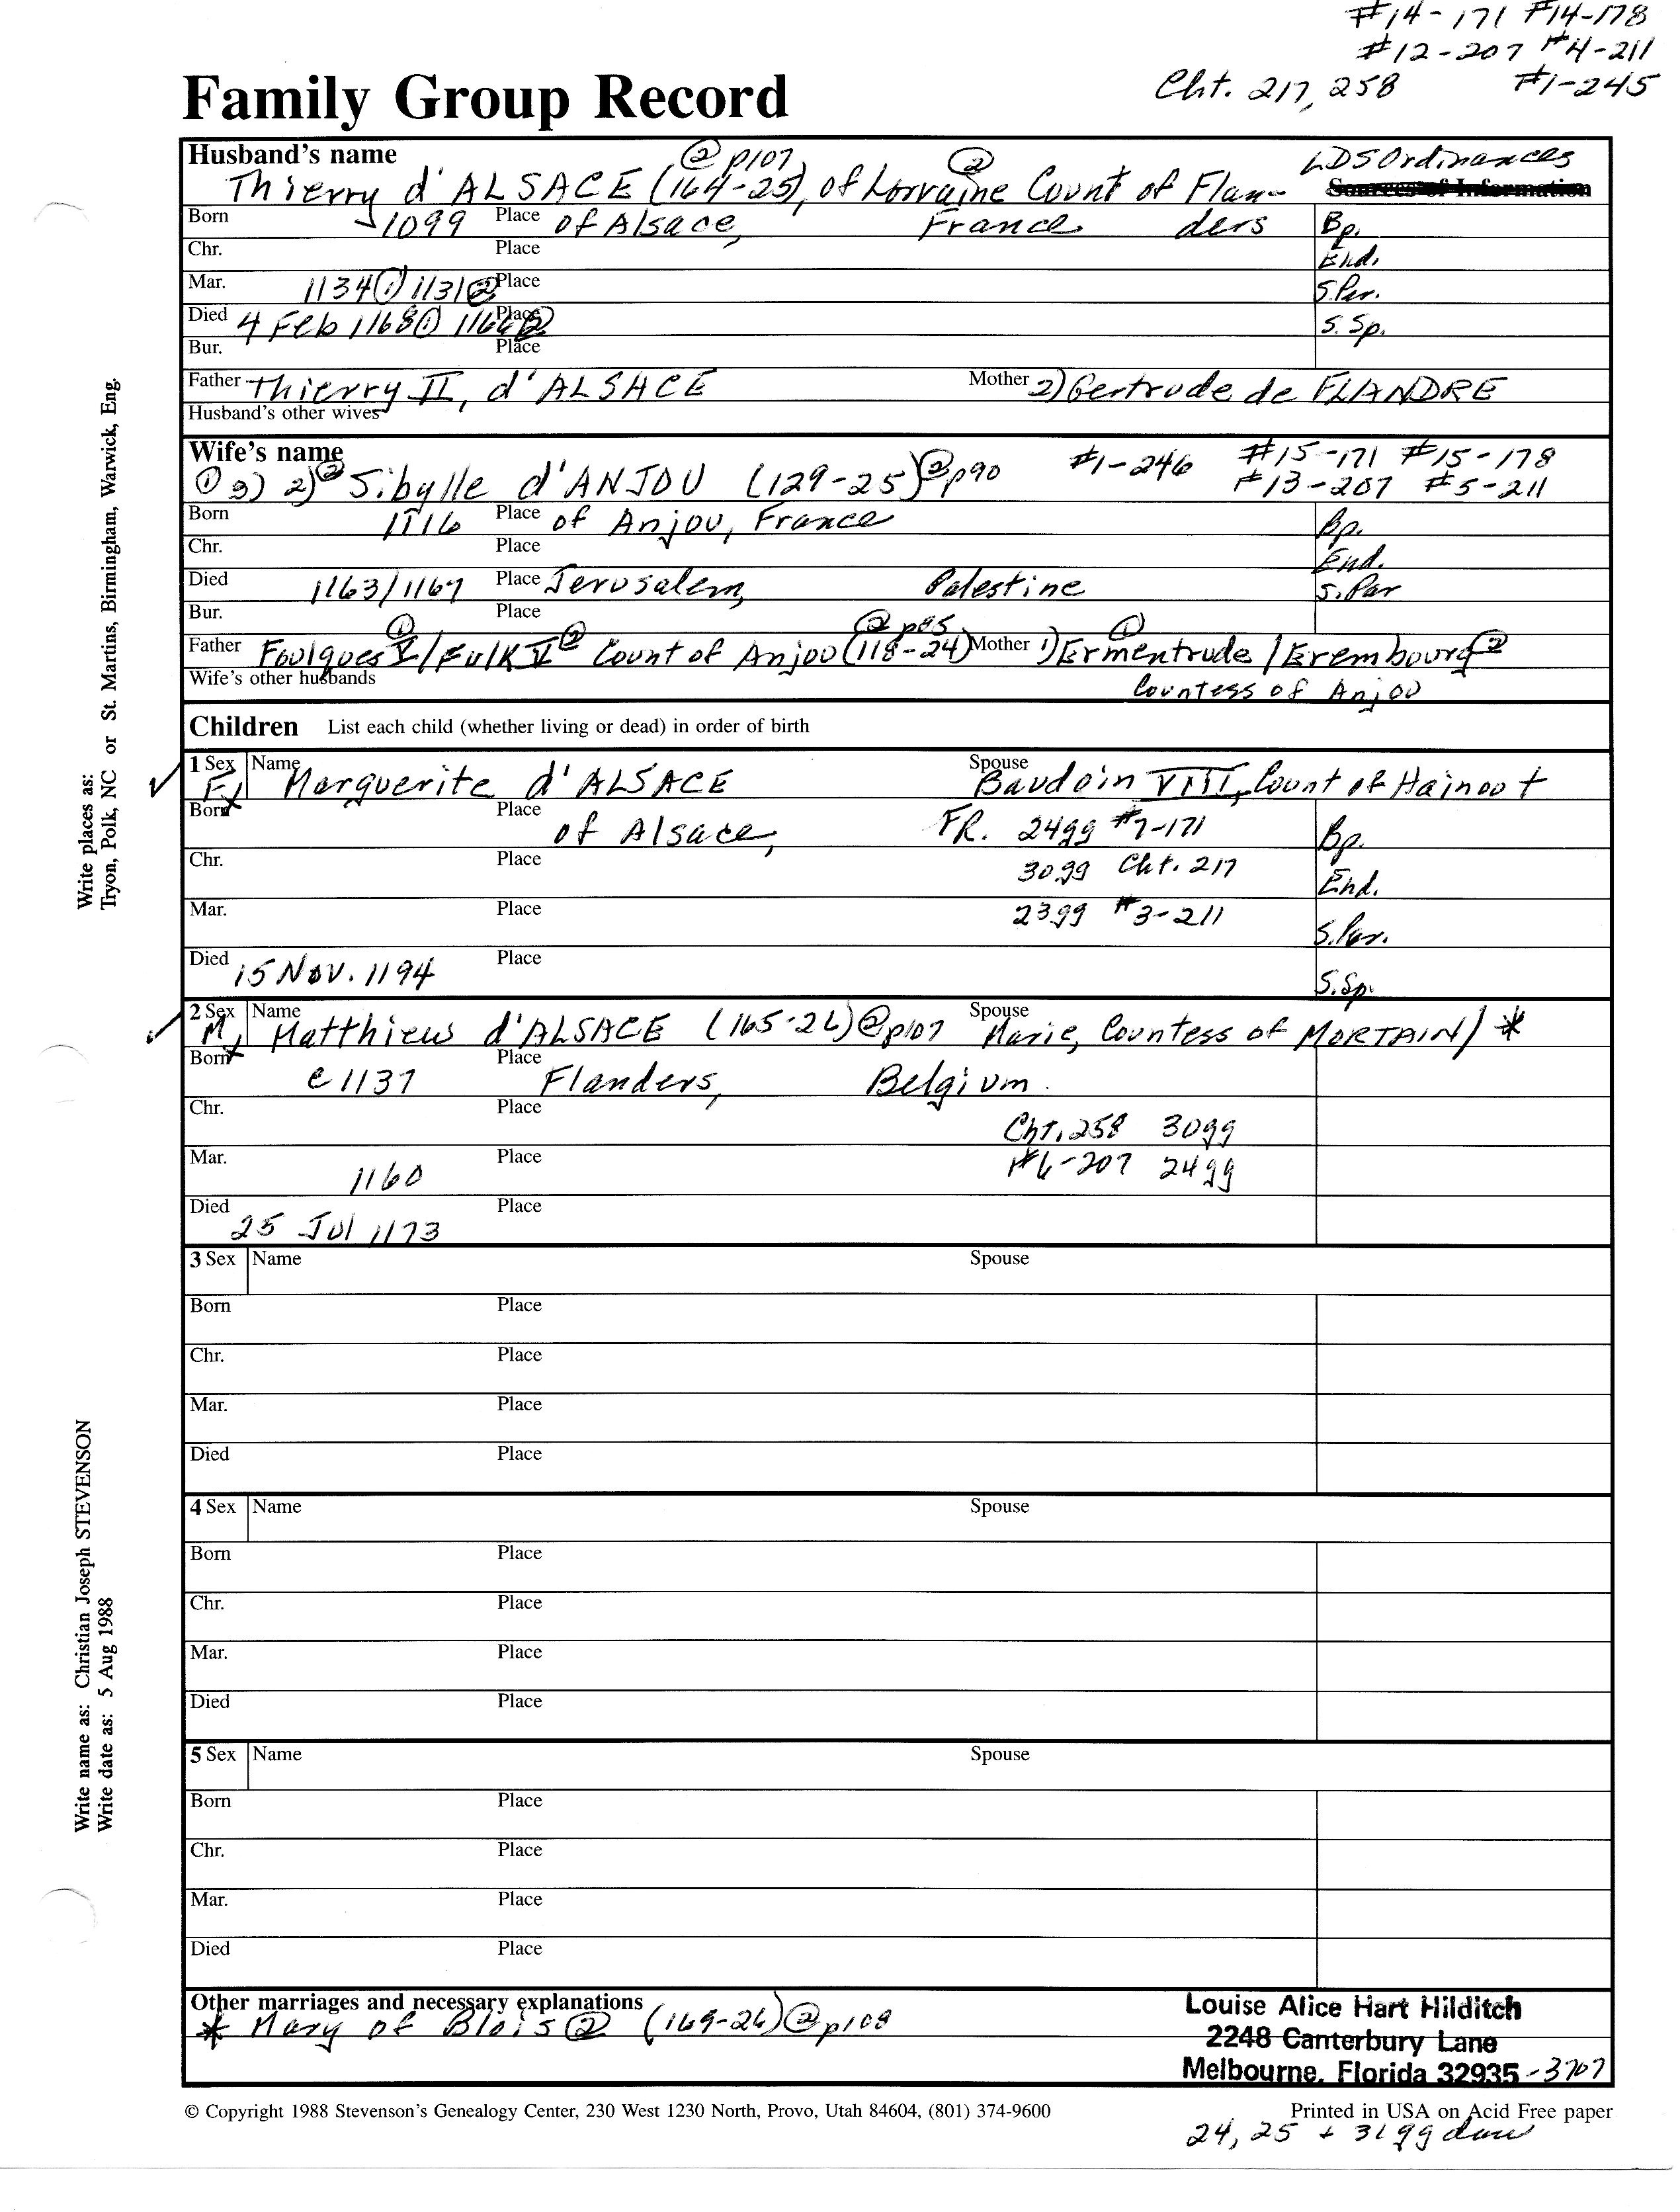 #14-171 #14-178
#12-207 #4-211
Cht. 217, 258 #1-245
Family Group Record
Husband's name
② p107 ② LDS Ordinances
Thierry d'ALSACE (164-25), of Lorraine Count of Flan-
Sources of Information
Born 1099 Place of Alsace, France ders Bp.
Chr. Place End.
Mar. 1134① 1131② Place S.Par.
Died 4 Feb 1168① Place S. Sp.
Bur. Place
Father Thierry II, d'ALSACE Mother 2) Gertrude de FLANDRE
Husband's other wives
Wife's name #1-246 #15-171 #15-178
① 3) 2)② Sibylle d'ANJOU (129-25)②p90 #13-207 #5-211
Born 1116 Place of Anjou, France Bp.
Chr. Place End.
Died 1163/1167 Place Jerusalem, Palestine S.Par
Bur. Place
① ② p85 ①
Father Foulques V/Fulk V② Count of Anjou (118-24) Mother 1) Ermentrude / Erembourg②
Wife's other husbands Countess of Anjou
Children List each child (whether living or dead) in order of birth
1 Sex Name Spouse
F Marguerite d'ALSACE Baudoin VIII, Count of Hainout
Born Place of Alsace, FR. 24gg #7-171 Bp.
Chr. Place 30gg Cht. 217 End.
Mar. Place 23gg #3-211 S.Par.
Died 15 Nov. 1194 Place S.Sp.
2 Sex Name Spouse
M Matthieu d'ALSACE (165-26)②p107 Marie, Countess of MORTAIN/ *
Born c 1137 Place Flanders, Belgium
Chr. Place Cht. 258 30gg
Mar. 1160 Place #6-207 24gg
Died 25 Jul 1173 Place
3 Sex Name Spouse
Born Place
Chr. Place
Mar. Place
Died Place
4 Sex Name Spouse
Born Place
Chr. Place
Mar. Place
Died Place
5 Sex Name Spouse
Born Place
Chr. Place
Mar. Place
Died Place
Other marriages and necessary explanations
* Mary of Blois② (169-26)②p108
Louise Alice Hart Hilditch
2248 Canterbury Lane
Melbourne, Florida 32935-3707
© Copyright 1988 Stevenson's Genealogy Center, 230 West 1230 North, Provo, Utah 84604, (801) 374-9600
Printed in USA on Acid Free paper
24, 25 + 31 gg dau
Write places as:
Tryon, Polk, NC or St. Martins, Birmingham, Warwick, Eng.
Write name as: Christian Joseph STEVENSON
Write date as: 5 Aug 1988